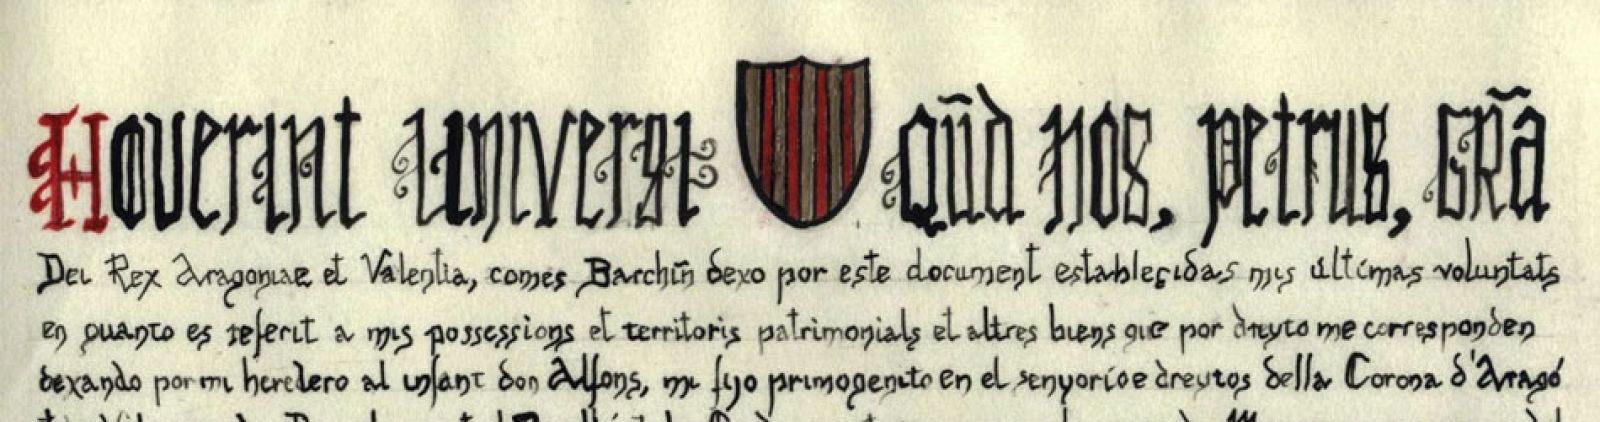 Hoverint universi qũd nos, petrus, gr̃a
Dei Rex Aragoniae et Valentia, comes Barchiñ dexo por este document estableçidas mis últimas voluntats
en quanto es referit a mis possessions et territoris patrimonials et altres biens que por dreyto me corresponden
dexando por mi heredero al infant don Alfons, mi fijo primogenito en el senyorío e dreytos della Corona d'Aragó